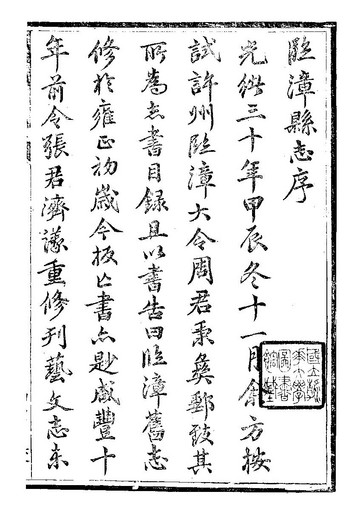 臨漳縣志序
光緒三十年甲辰冬十一月余方按
試許州臨漳大令周君秉彝郵致其
所為志書目録且以書告曰臨漳舊志
修於雍正初歲今板亡書亦尠咸豐十
年前令張君濟重修刊藝文志